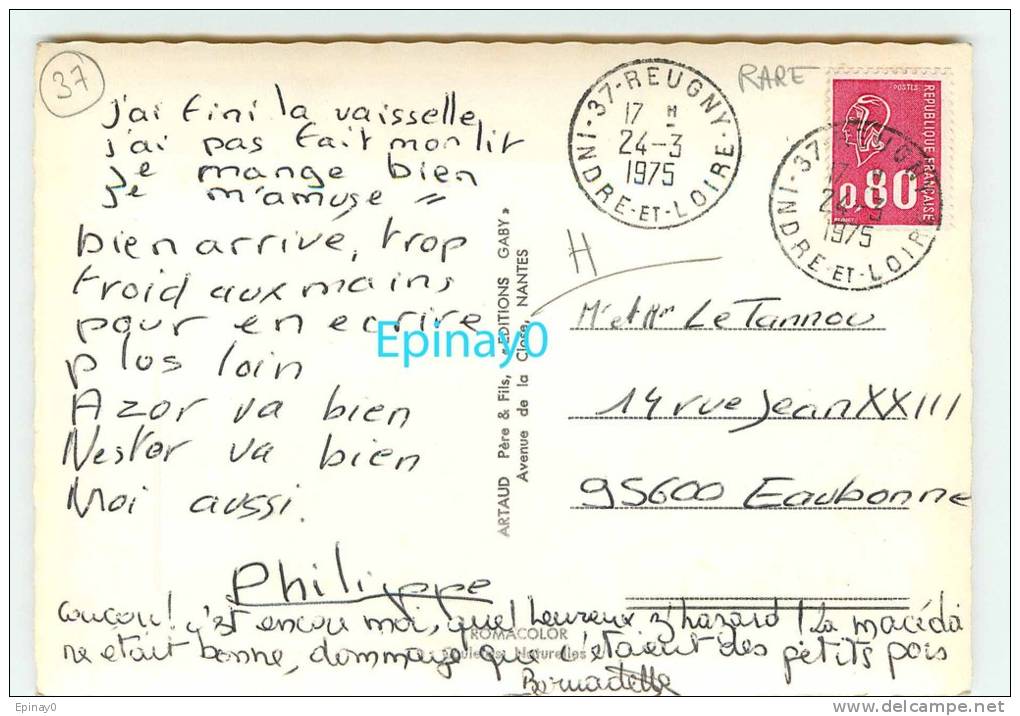 37
j'ai fini la vaisselle
j'ai pas fait mon lit
je mange bien
je m'amuse "
bien arrivé, trop
froid aux mains
pour en ecrire
plus loin
Azor va bien
Nestor va bien
Moi aussi.
Philippe
coucou! c'est encore moi, quel heureux z'hazard! La macédoi
ne était bonne, dommage que c'étaient des petits pois
Bernadette
ARTAUD Père & Fils, « EDITIONS GABY »
Avenue de la Close, NANTES
ROMACOLOR
Naturelles
37-REUGNY
17 H
24-3
1975
INDRE-ET-LOIRE
RARE
POSTES
REPUBLIQUE FRANÇAISE
0.80
37-REUGNY
17 H
24-3
1975
INDRE-ET-LOIRE
H
Mr et Mme Le Tannou
14 rue Jean XXIII
95600 Eaubonne
Epinay0
Epinay0
Epinay0